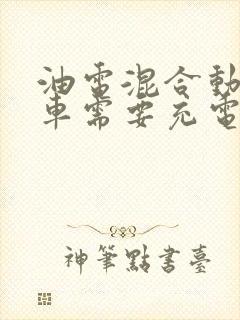 油電混合動
車需要充電
神筆點書臺